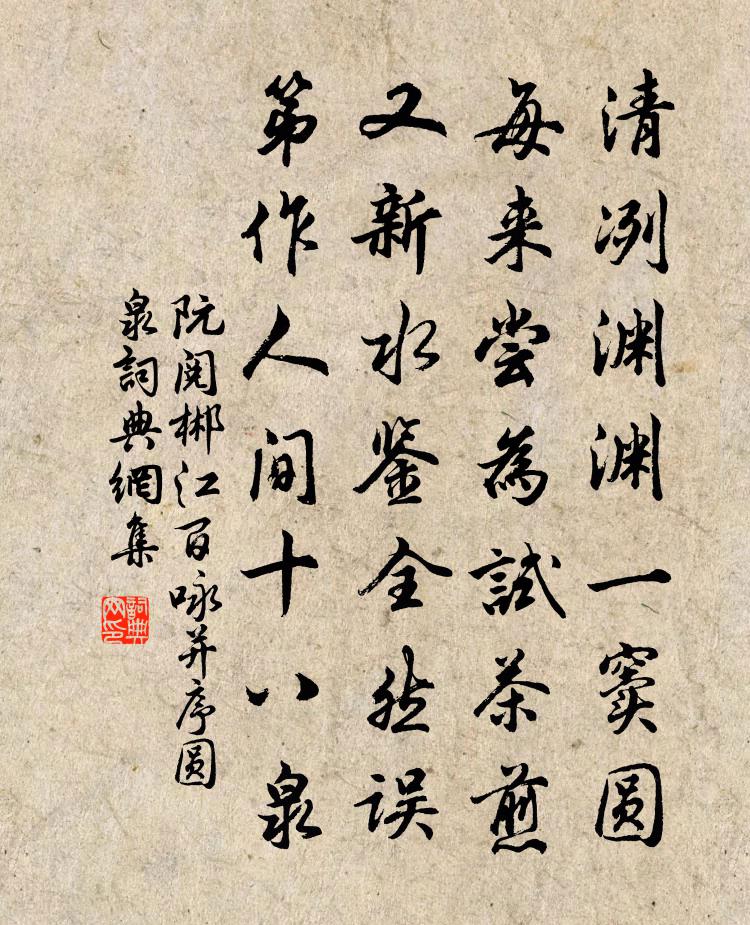 清冽渊渊一窦圆
每来尝为试茶煎
又新水鉴全然误
第作人间十八泉
阮阅郴江百咏并序圆
泉詞典網集
詞典网印